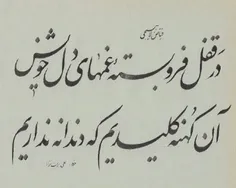 در قفل فروبستهٔ غمهای دل خویش
آن کهنه کلیدیم که دندانه نداریم